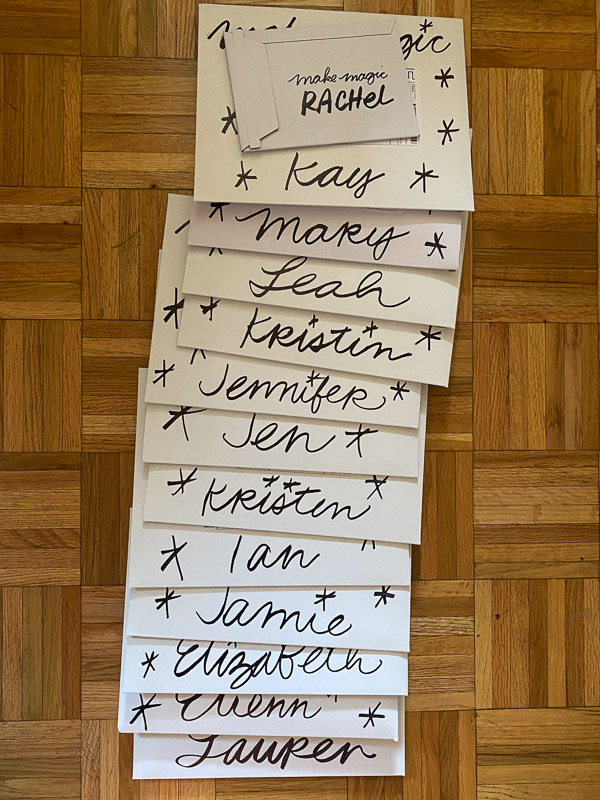 make magic
make magic
RACHel
Kay
Mary
Leah
Kristin
Jennifer
Jen
Kristen
Ian
Jamie
Elizabeth
Lauren